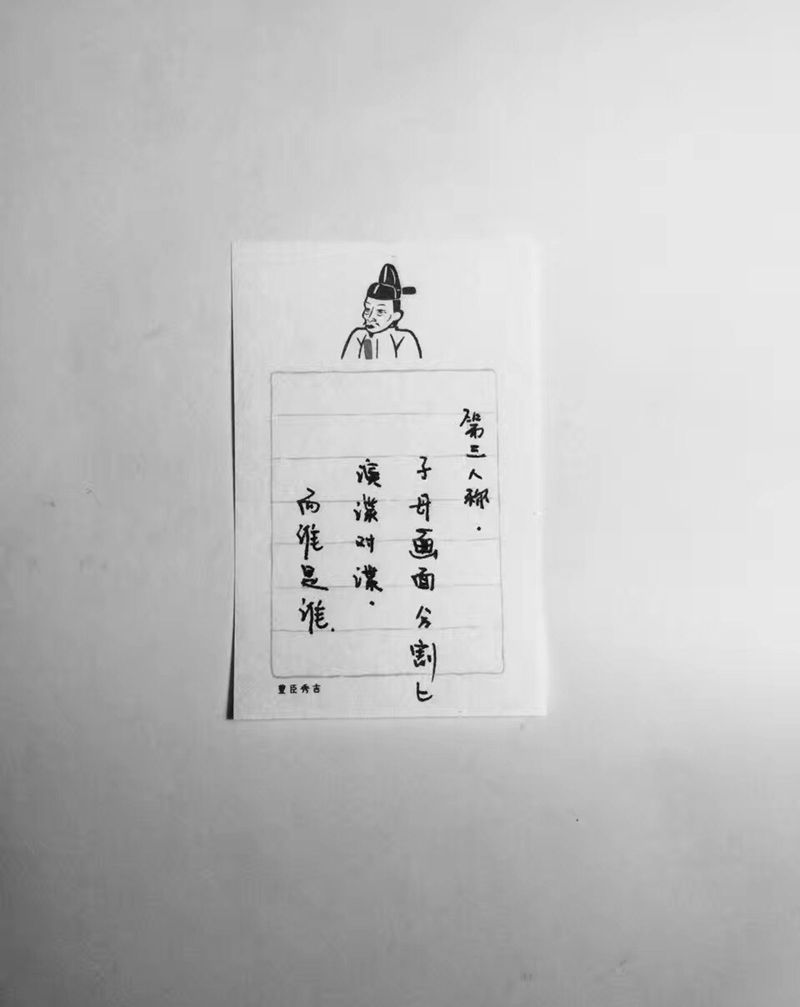 第三人称.
子母画面分割上
演谍对谍.
而谁是谁.
豊臣秀吉